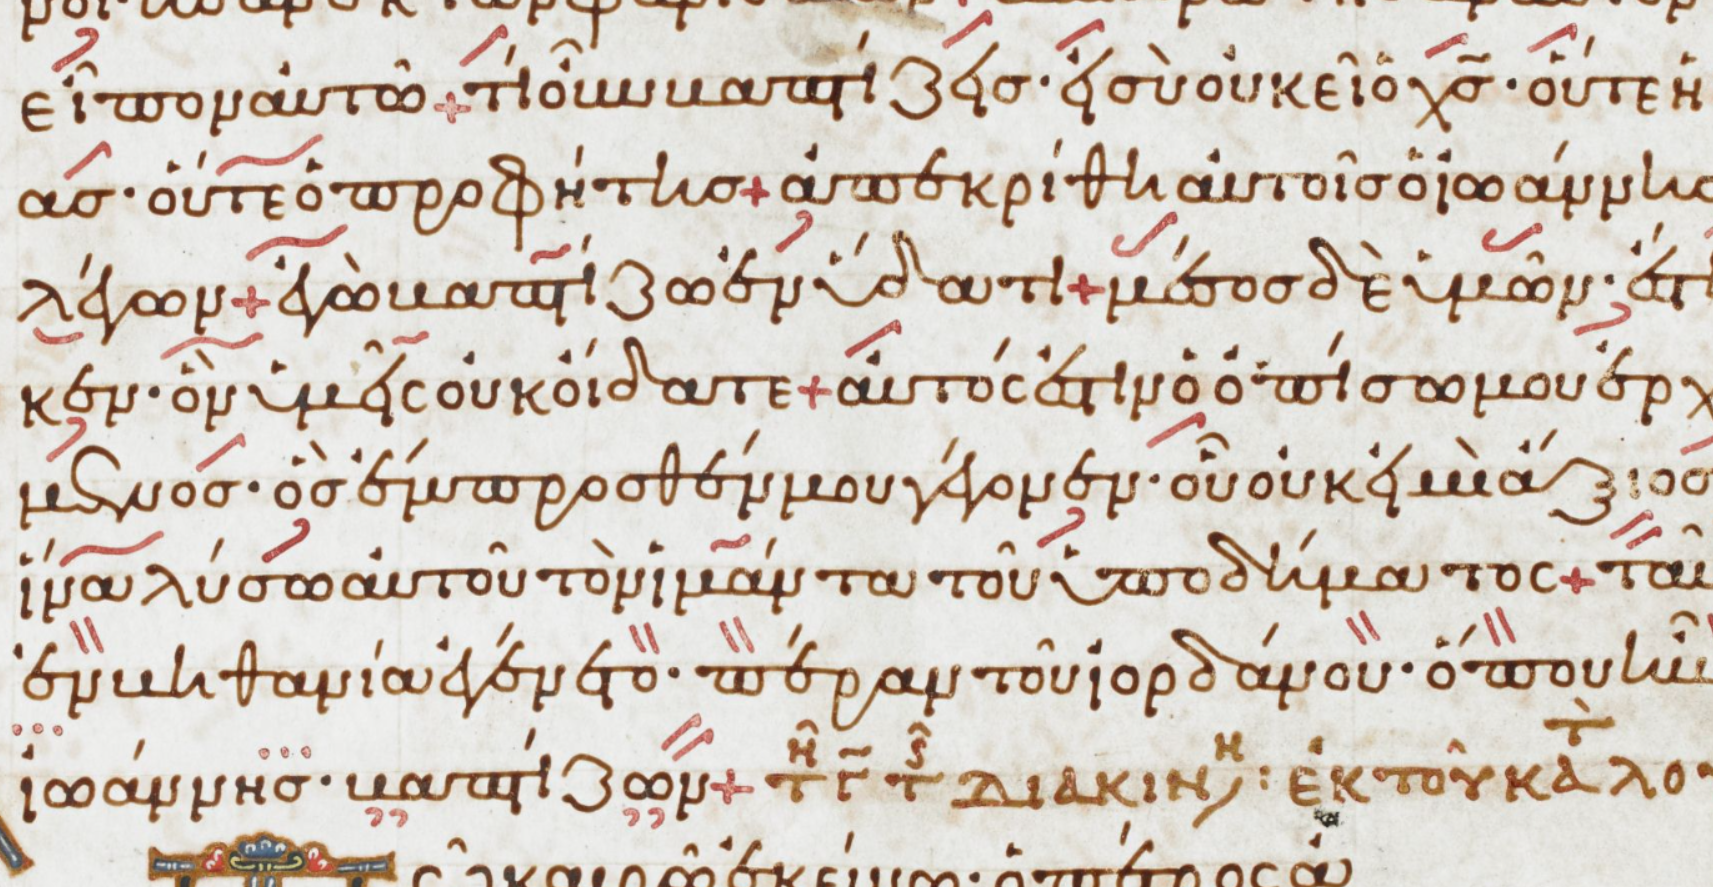 εἶπον αὐτῶ + τί οὖν βαπτίζεις· εἰ σὺ οὐκ εἶ ὁ χ̅σ̅· οὔτε ἡ
ας· οὔτε ὁ προφήτης + ἀπεκρίθη αὐτοῖς ὁ ἰωάννης
λέγων + ἐγὼ βαπτίζω ἐν ὕδατι + μέσος δὲ ὑμῶν· ἕστη
κεν· ὃν ὑμεῖς οὐκ οἴδατε + αὐτός ἐστιν ὁ ὀπίσω μου ἐρχ
μενος· ὃς ἔμπροσθέν μου γέγονεν· οὗ οὐκ εἰμὶ ἄξιος
ἵνα λύσω αὐτοῦ τὸν ἱμάντα τοῦ ὑποδήματος + ταῦ
ἐν βηθανία ἐγένετο· πέραν τοῦ ἰορδάνου· ὅπου ἦν
ἰωάννης· βαπτίζων + τῆ γ̅ τῆς διακινη: ἐκ τοῦ κατὰ λου
καιρῶ ἐκείνω· ὁ πέτρος ἀ